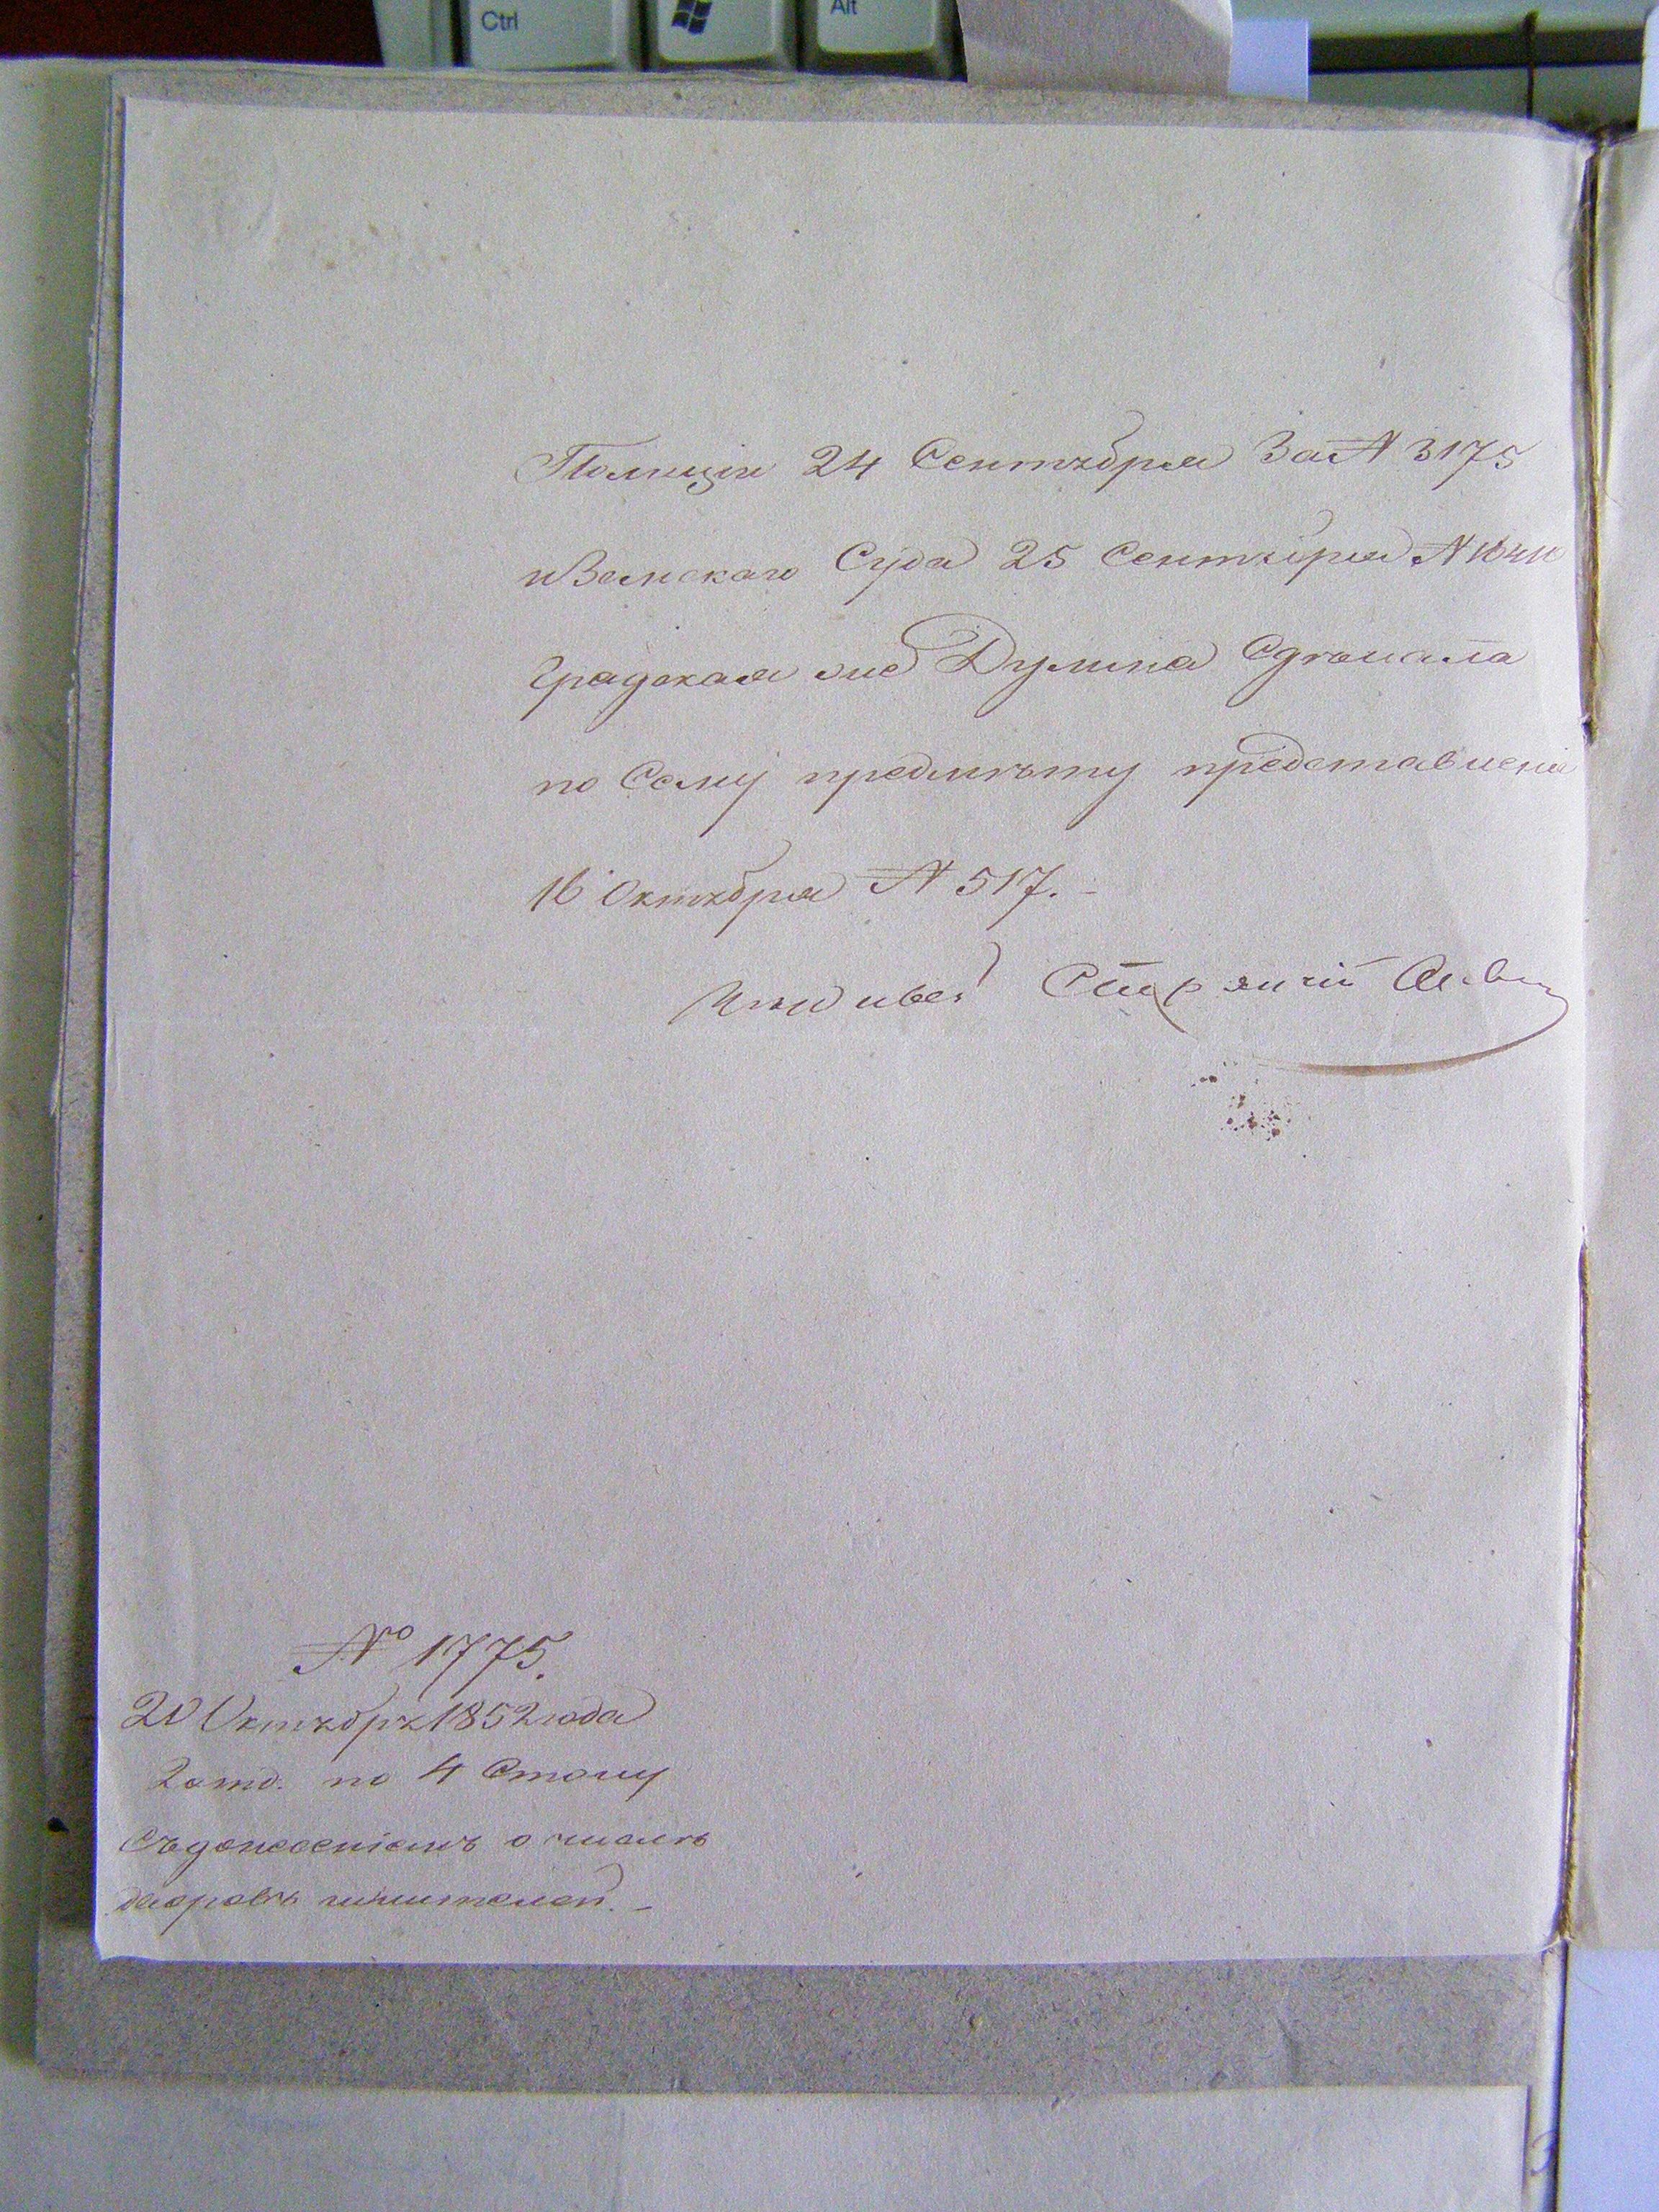 Ctrl
Alt
Полиціи 24 Сентября За № 3175
и Земскаго Суда 25 Сентября №
Градская же Думма Сдѣлала
по Сему предмѣту представленіе
16 Октября № 517. -
Стряпчій
№ 1775.
20 Октября 1852 года
2 отд. по 4 Столу
Съ донесеніемъ о числѣ
дворовъ и жителей. -